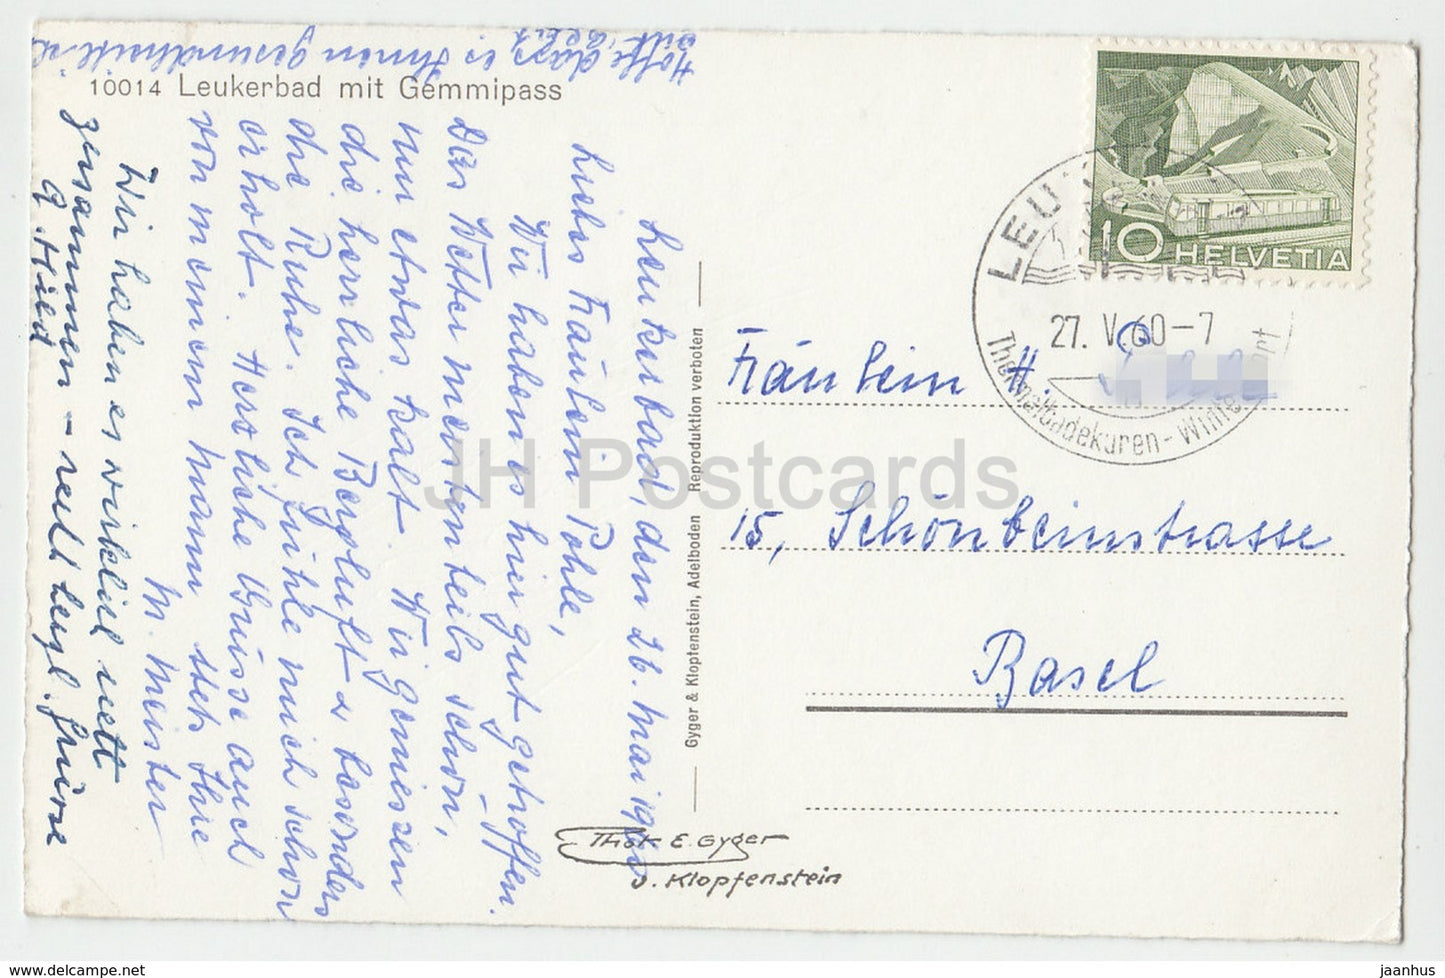 10014 Leukerbad mit Gemmipass
Leukerbad, den 26. Mai 1960
Liebes Fräulein Pohle,
Wir haben es hier gut getroffen.
Das Wetter meistenteils schön,
nur etwas kalt. Wir geniessen
die herrliche Bergluft & besonders
die Ruhe. Ich fühle mich schon
erholt. Herzliche Grüsse auch
von meinem Mann stets Ihre
M. Meister
Hoffe dass es Ihnen gesundheitlich
gut geht
Wir haben es wirklich nett
zusammen – recht herzl. Grüsse
G. Hild
Gyger & Klopfenstein, Adelboden Reproduktion verboten
Phot. E. Gyger
u. Klopfenstein
10 HELVETIA
LEU
27. V. 60–7
Thermalbadekuren - Winte ort
Fräulein H.
15, Schönbeinstrasse
Basel
JH Postcards
www.delcampe.net
jaanhus